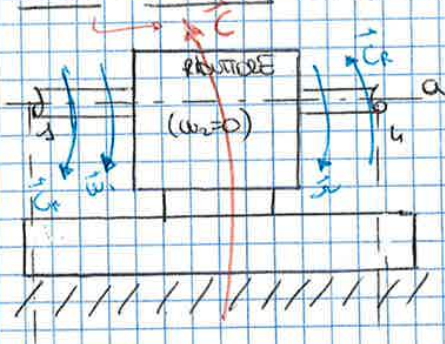 C
RIDUTTORE
(ω₂=0)
C_R
a
1
4
ω₁